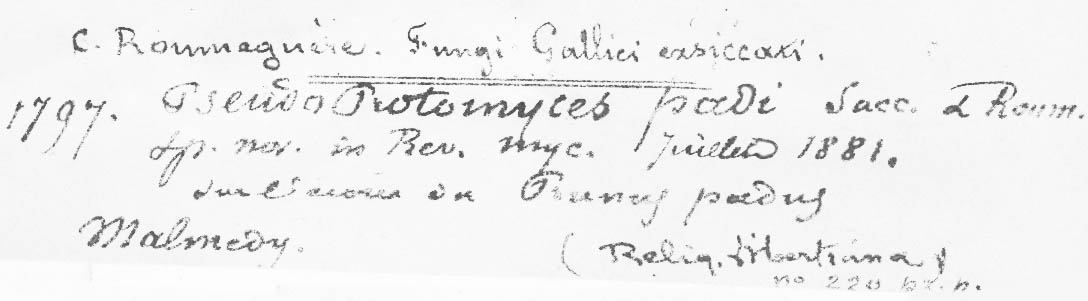 C. Roumeguère. Fungi Gallici exsiccati.
1797. Pseudo Protomyces padi Sacc. & Roum.
Sp. nov. in Rev. myc. Juillet 1881.
sur l'écorce du Prunus padus
Malmedy.
(Reliq. Libertiana)
no 220 bx. n.